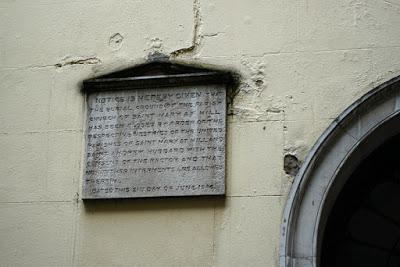 NOTICE IS HEREBY GIVEN THAT
THE BURIAL GROUND OF THE PARISH
CHURCH OF SAINT MARY AT HILL
HAS BEEN CLOSED BY ORDER OF THE
RESPECTIVE VESTRIES OF THE UNITED
PARISHES OF SAINT MARY AT HILL AND
SAINT ANDREW HUBBARD WITH THE
CONSENT OF THE RECTOR AND THAT
NO FURTHER INTERMENTS ARE ALLOWED
THEREIN
DATED THIS DAY OF JUNE 1846